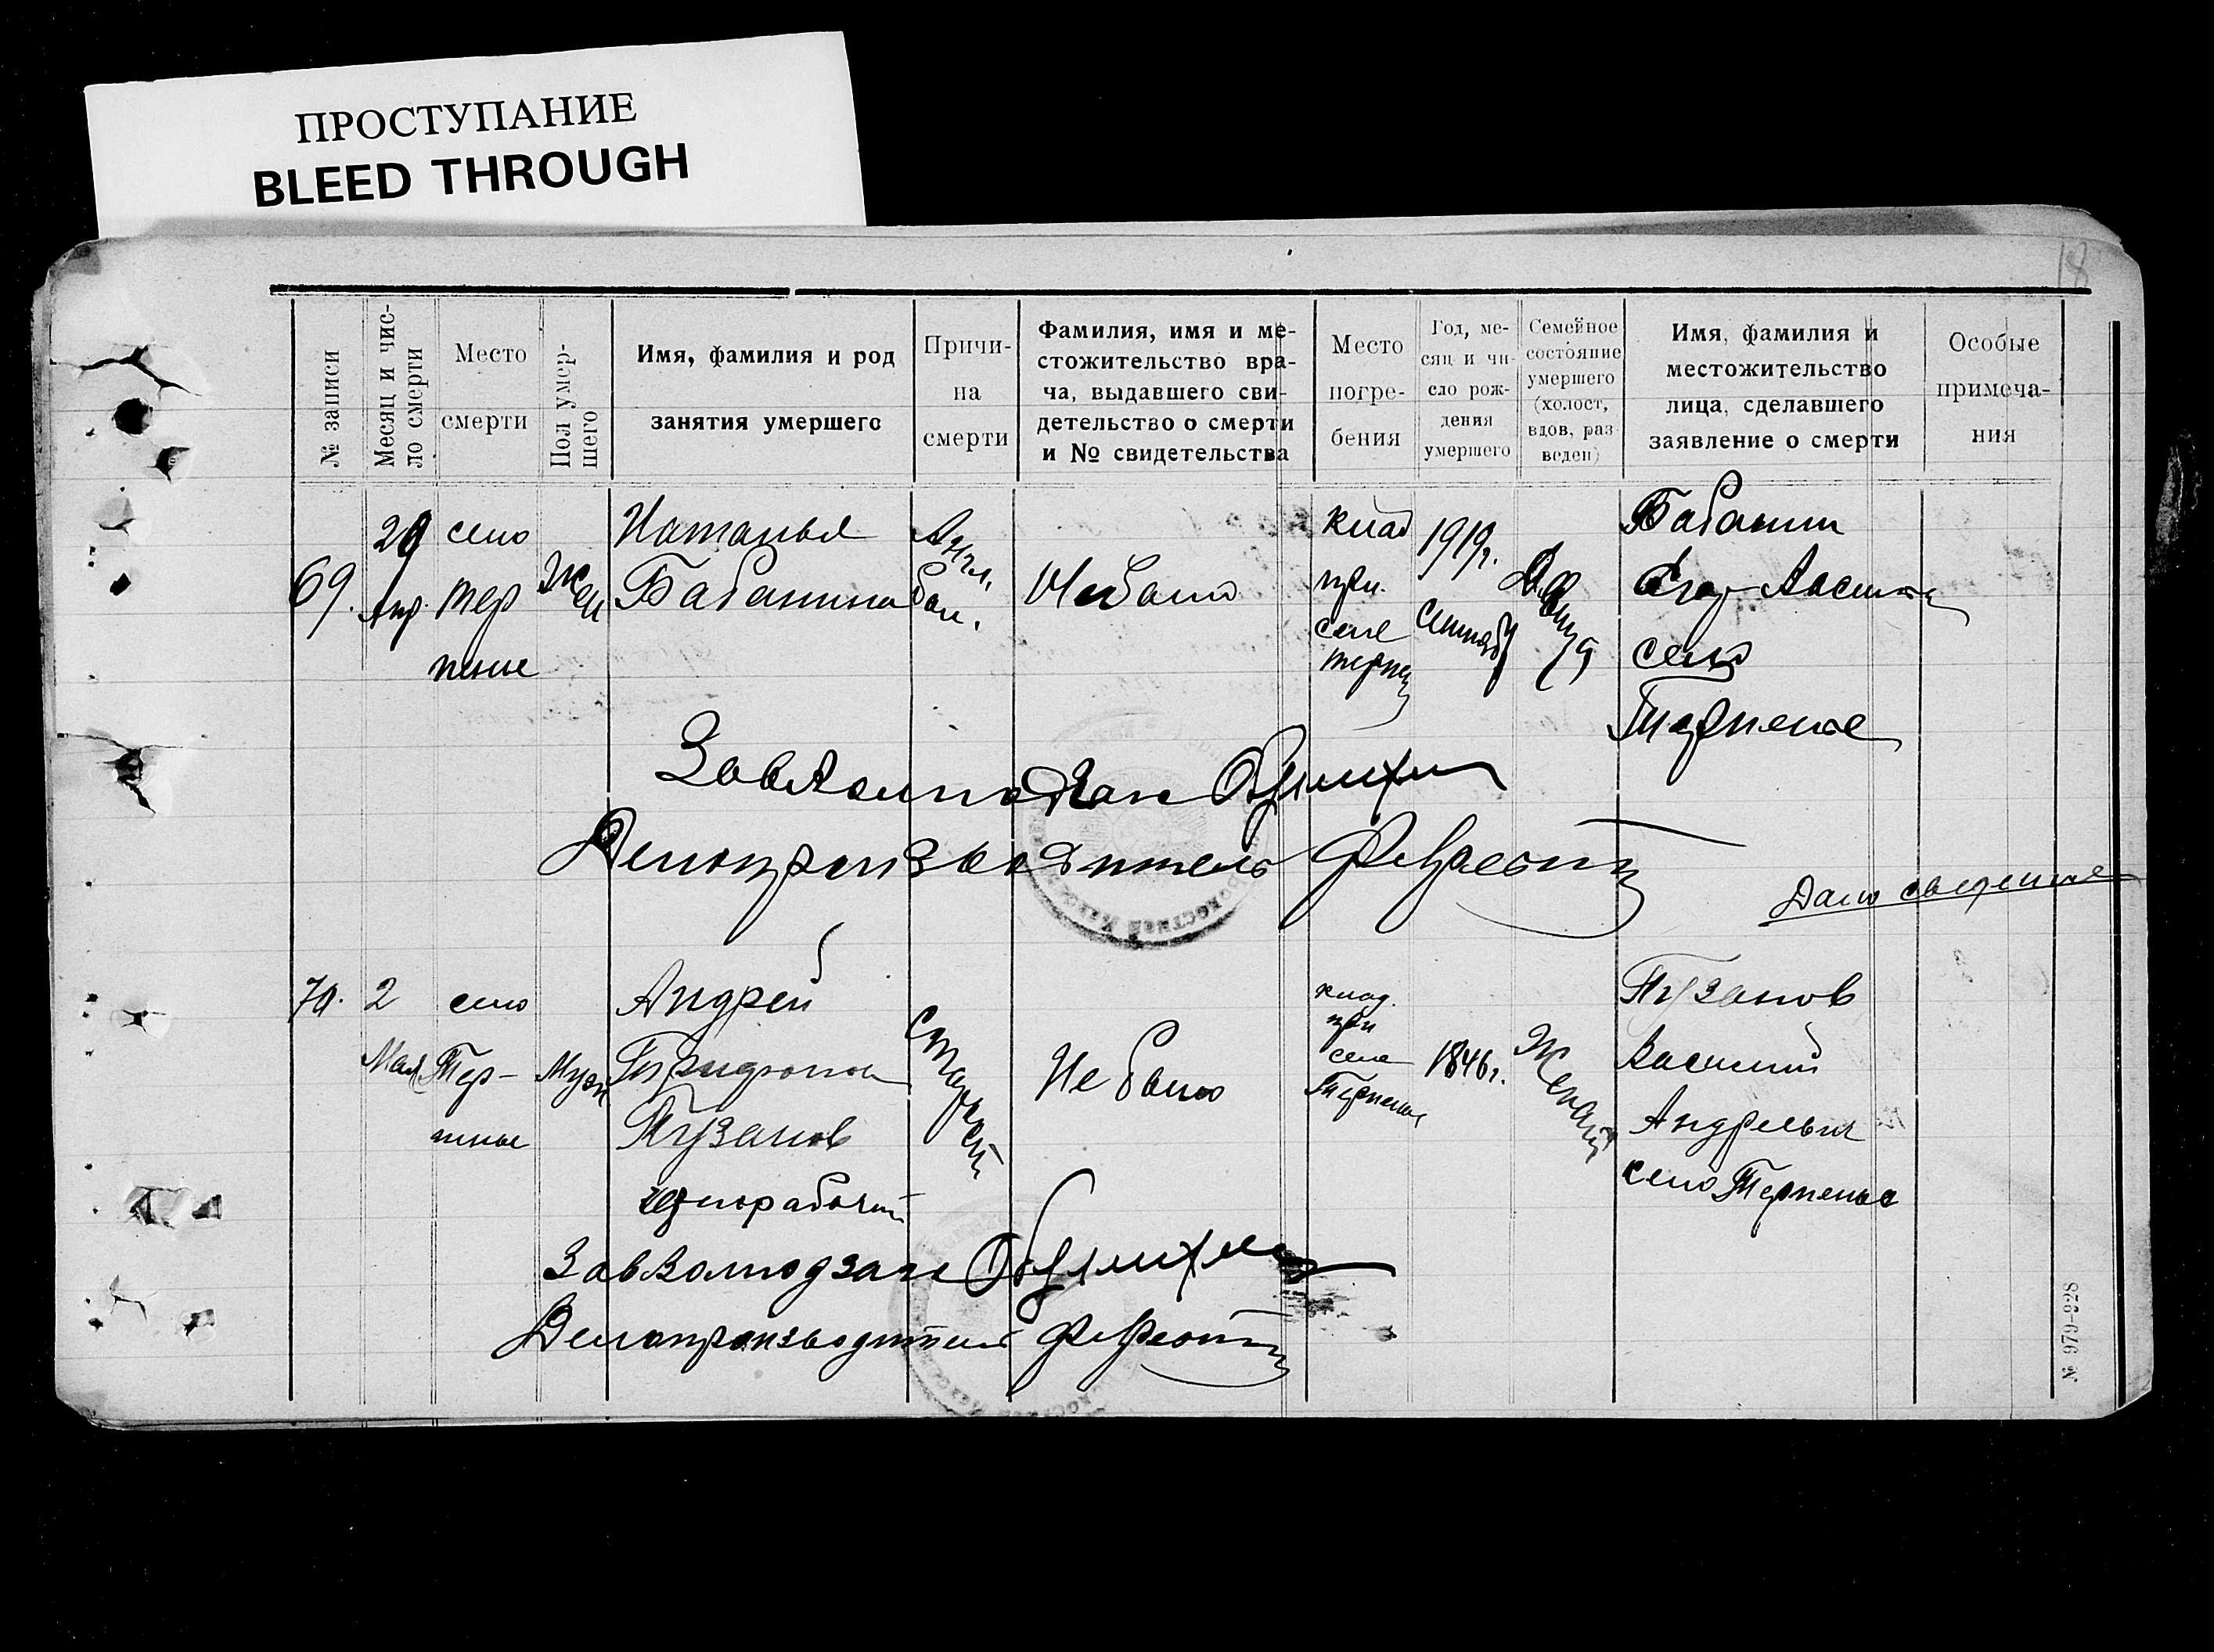 ПРОСТУПАНИЕ
BLEED THROUGH
18
№ записи
Месяц и чис-
ло смерти
Место
смерти
Пол умер-
шего
Имя, фамилия и род
занятия умершего
Причи-
на
смерти
Фамилия, имя и ме-
стожительство вра-
ча, выдавшего сви-
детельство о смерти
и № свидетельства
Место
погре-
бения
Год, ме-
сяц и чи-
сло рож-
дения
умершего
Семейное
состояние
умершего
(холост,
вдов, раз-
веден)
Имя, фамилия и
местожительство
лица, сделавшего
заявление о смерти
Особые
примеча-
ния
69.
Апр.
село
Тер
пенье
Жен
Наталья
Бабанина
Англ.
бол.
Не было
клад
при.
селе
терпен
1919г.
Сентябр
Девица
Бабанин
Егор
село
Терпенье
ЗавВолподзагс
Делопроизводитель
Дано сведение
70.
2
Мая
село
Тер-
пенье
Муж
Андрей
Пузанов
чернорабочий
Старость
Не было
клад.
при
селе
Терпенье
1846г.
Женат
Пузанов
Василий
Андреевич
село Терпенье
ЗавВолподзагс
Делопроизводитель
№ 979-928